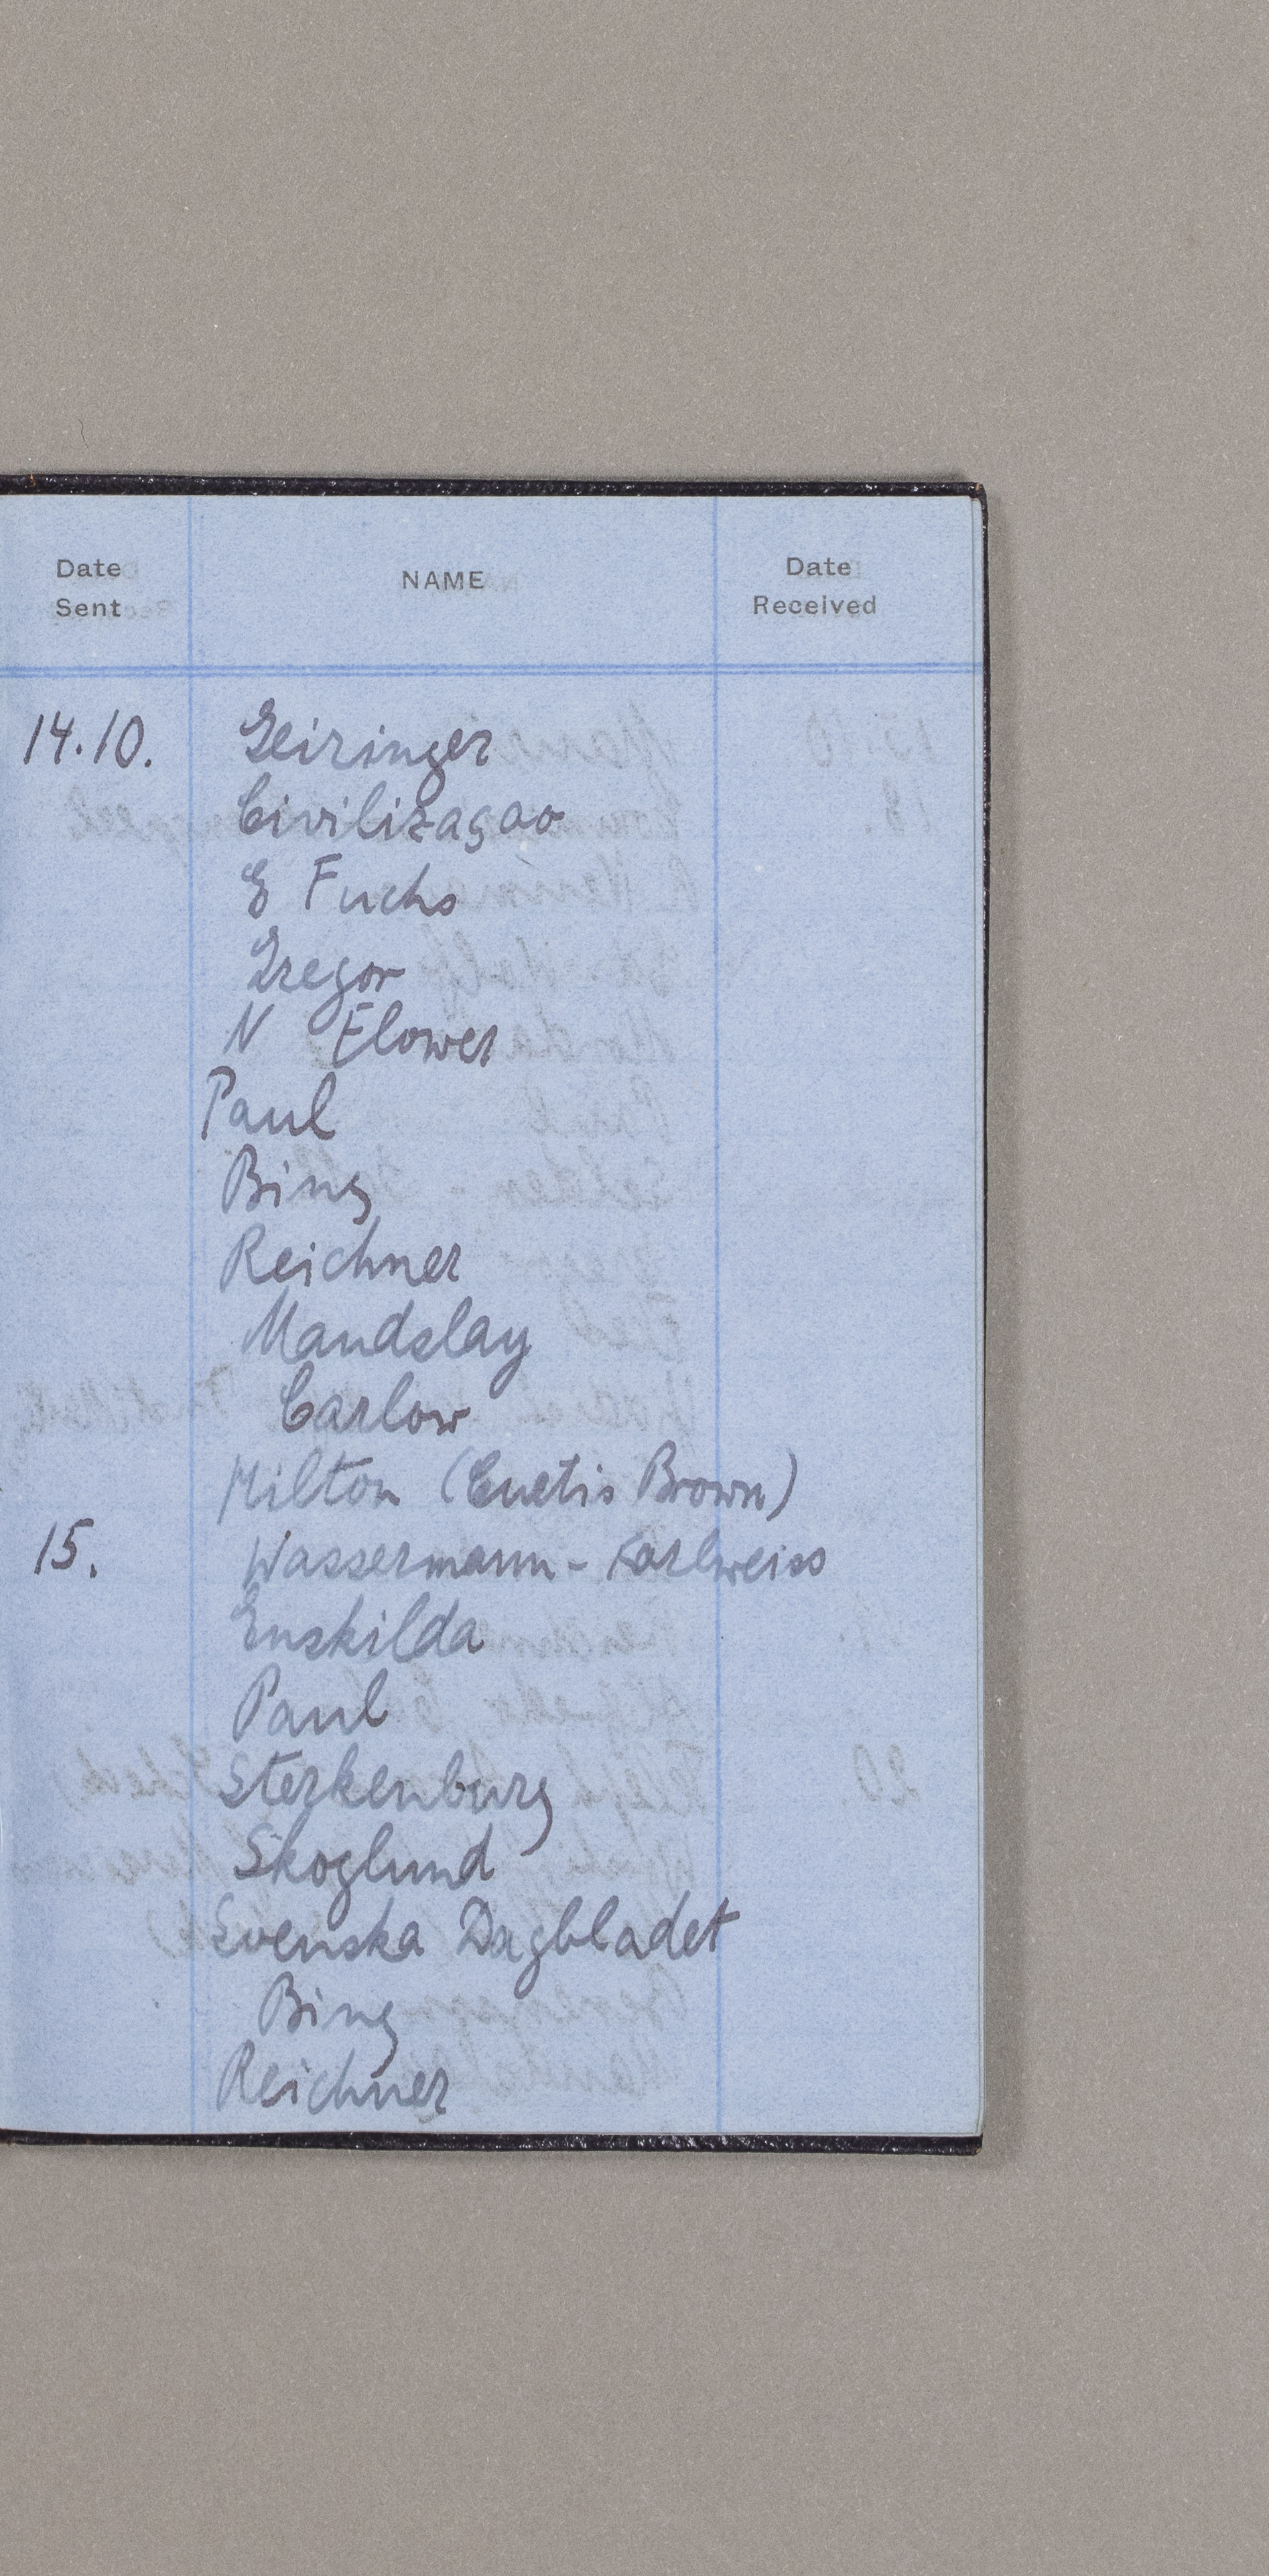 Date Sent NAME Date Received
14.10. Geiringer
Civilizaçao
E Fuchs
Gregor
N Flower
Paul
Bing
Reichner
Maudslay
Carlow
Milton (Curtis Brown)
15. Wassermann - Karlweiss
Enskilda
Paul
Sterkenburg
Skoglund
Svenska Dagbladet
Bing
Reichner